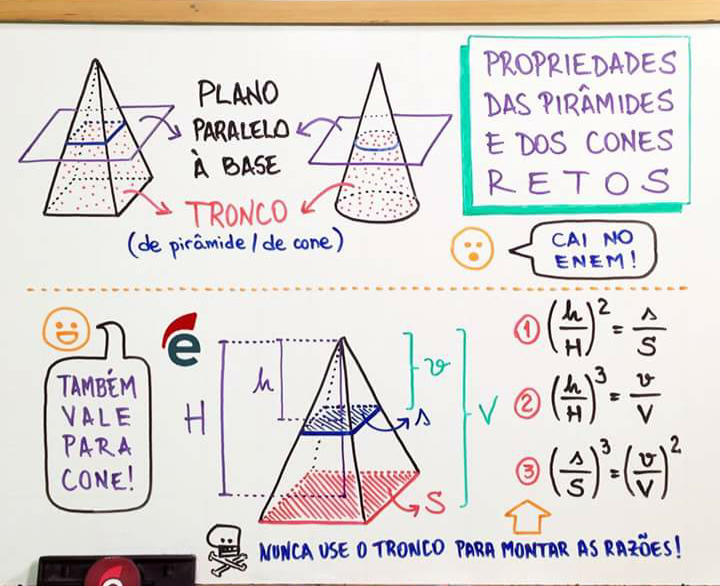 PLANO
PARALELO
À BASE
TRONCO
(de pirâmide / de cone)
PROPRIEDADES
DAS PIRÂMIDES
E DOS CONES
RETOS
CAI NO
ENEM!
TAMBÉM
VALE
PARA
CONE!
e
H
h
v
V
s
S
① (h/H)² = s/S
② (h/H)³ = v/V
③ (s/S)³ = (v/V)²
NUNCA USE O TRONCO PARA MONTAR AS RAZÕES!
e